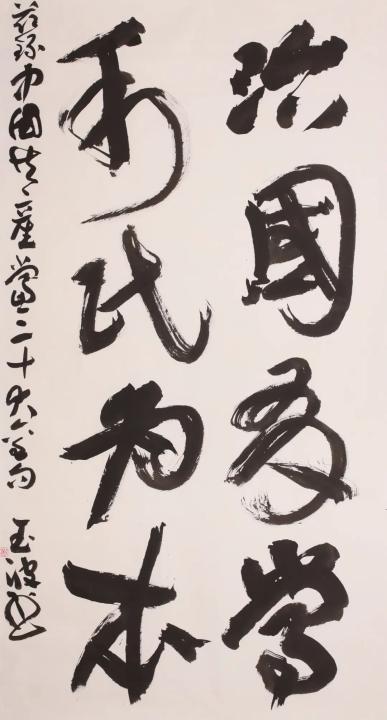 治國有常
利民为本
录中国共产党二十大箴句 玉波书